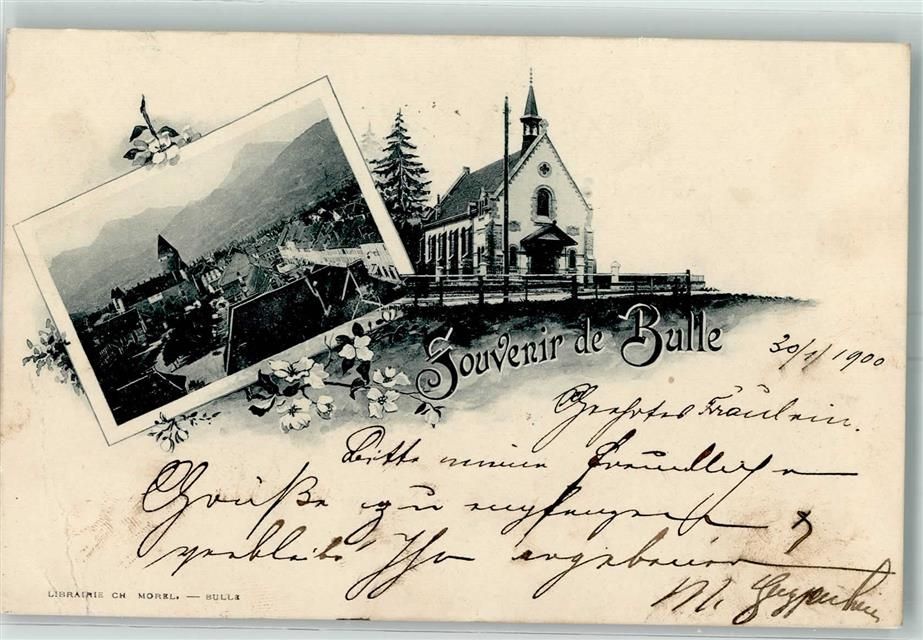 Souvenir de Bulle
20/1/1900
Geehrtes Fräulein.
Bitte meine freundliche
Grüße zu empfangen &
verbleibe Ihr ergebener
M.
LIBRAIRIE CH MOREL. — BULLE